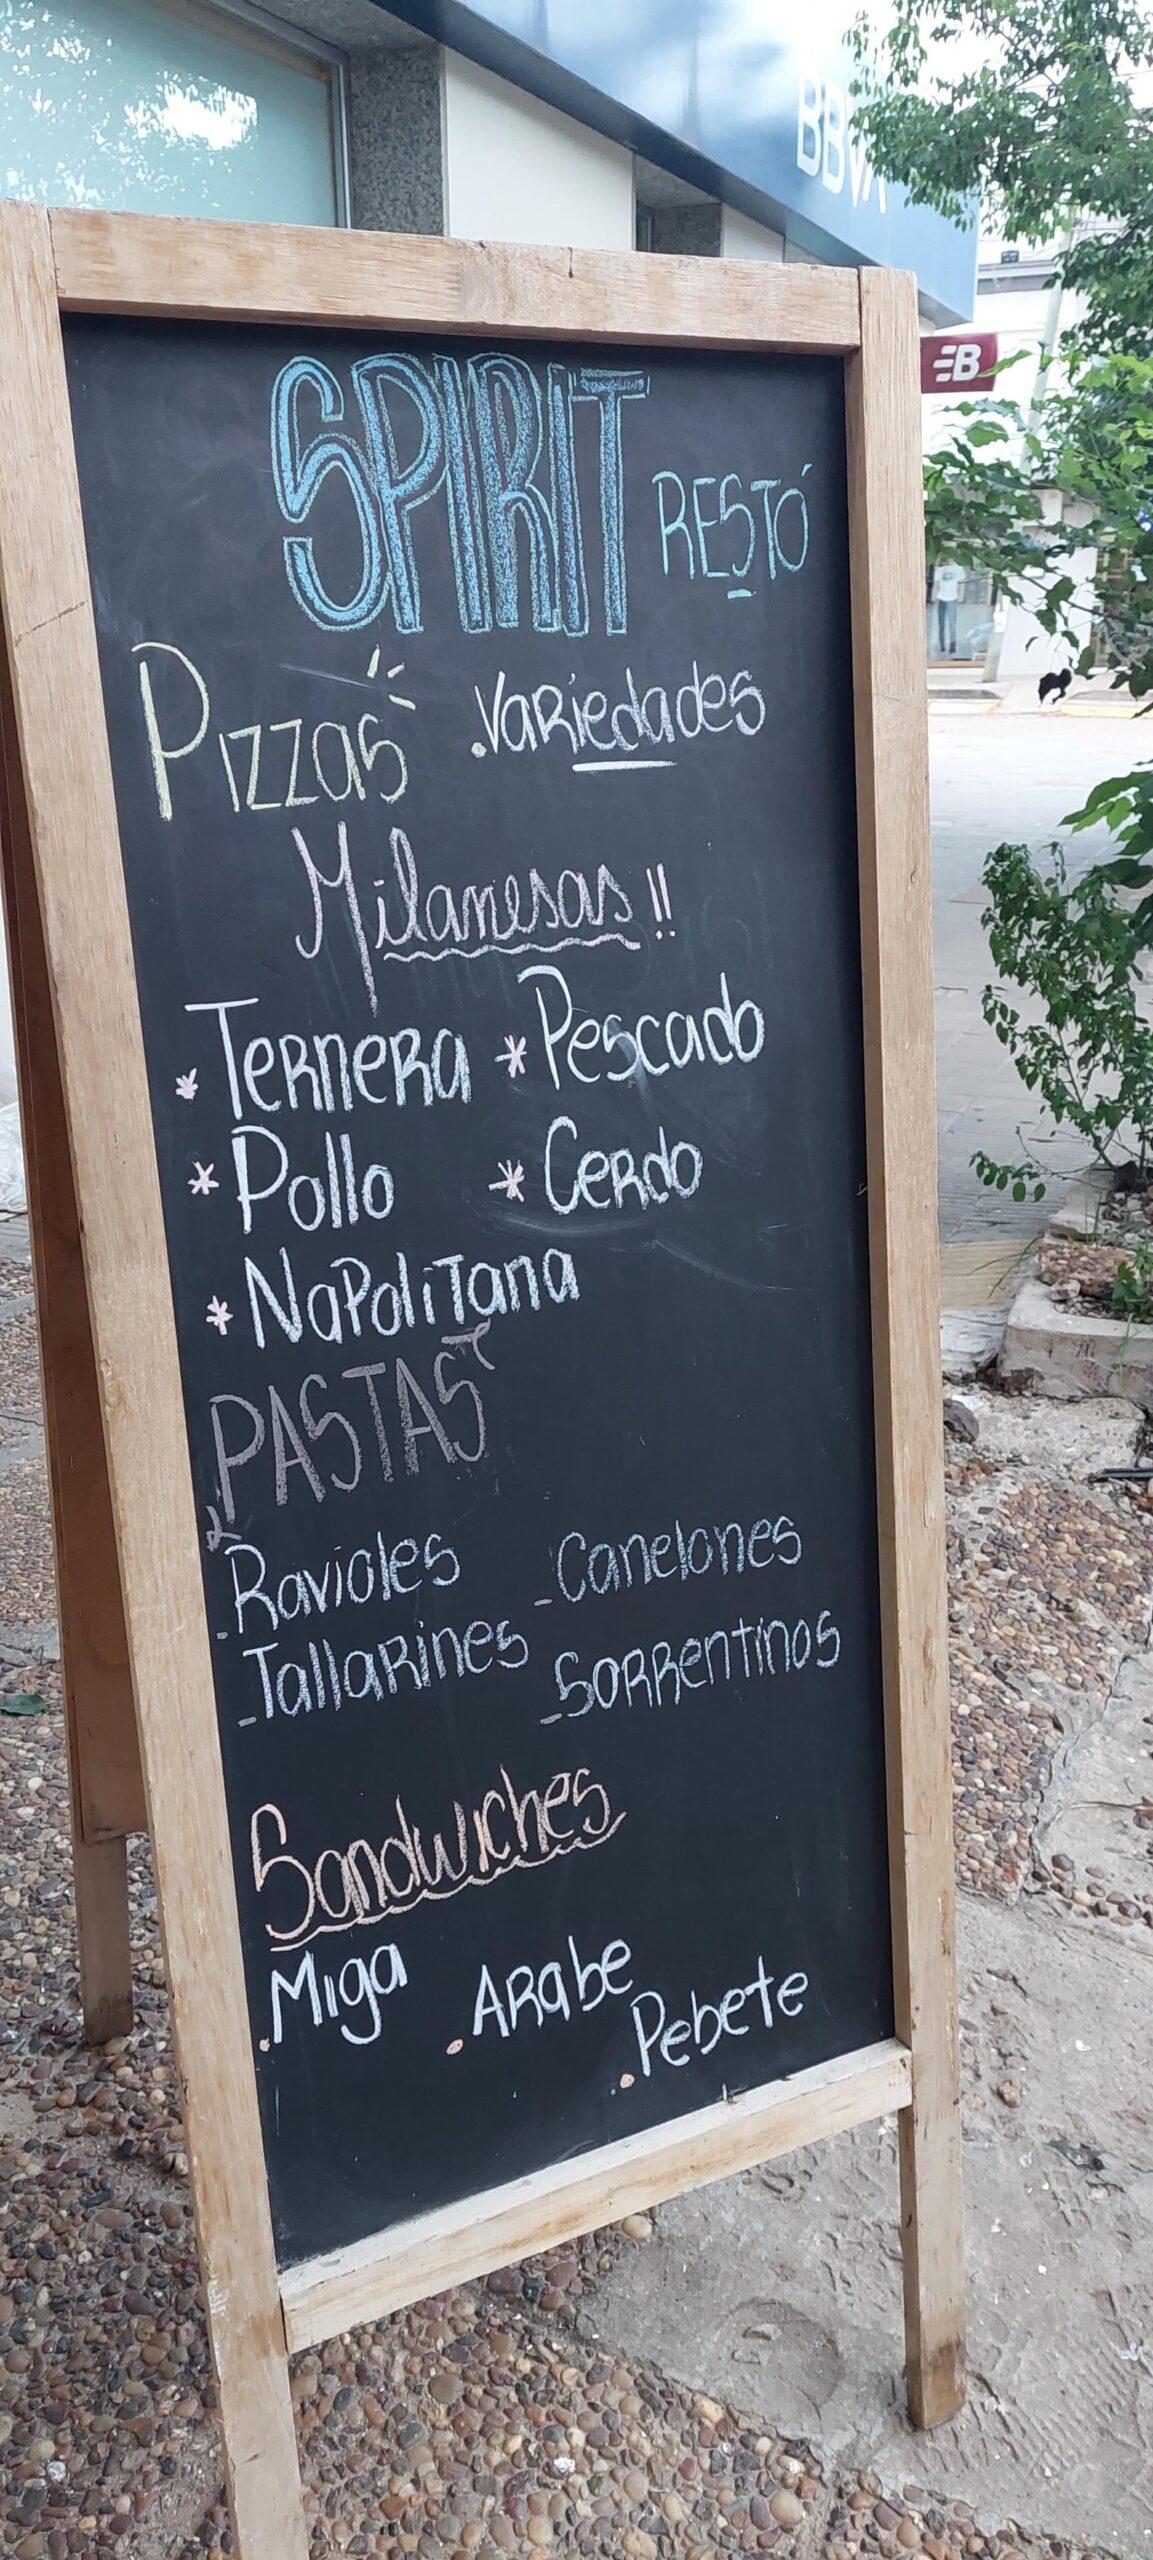 BBVA
B
SPIRIT RESTÓ
Pizzas .Variedades
Milanesas!!
* Ternera * Pescado
* Pollo * Cerdo
* Napolitana
PASTAS
-Ravioles -Canelones
-Tallarines -Sorrentinos
Sandwiches
.Miga .Arabe
.Pebete